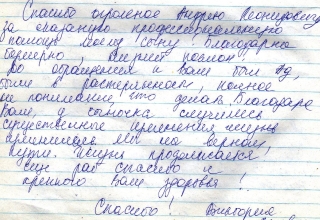 Спасибо огромное Андрею Леонидовичу
за оказанную профессиональную
помощь моему сыну. Благодарна
безмерно, низкий поклон
До обращения к Вам был ад,
были в растерянности, полное
не понимание, что делать. Благодаря
Вам, у сыночка случились
существенные изменения жизнь
мы на верном
пути. Жизнь продолжается
Ещё раз спасибо и
крепкого Вам здоровья!
Спасибо! Виктория